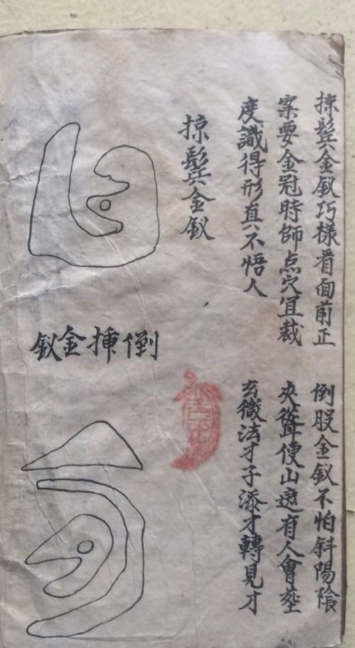 掠鬂金釵巧樣看面前正
案要金冠時師点穴宜裁
度識得形真不悟人
掠鬂金釵
倒揷金釵
倒股金釵不怕斜陽陰
夾從便山遶有人會塟
玄微法才子添才轉見才